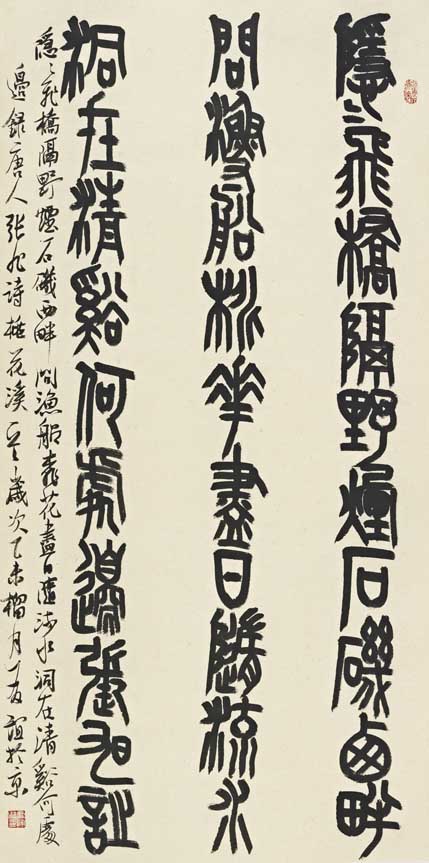 隱〻飛橋隔野煙石磯西畔
問漁船桃花盡日隨流水
洞在清谿何處邊張旭詩
隱〻飛橋隔野煙石磯西畔問漁船桃花盡日隨流水洞在清谿何處
邊錄唐人張旭詩桃花溪歲次乙未榴月丁友誼於京